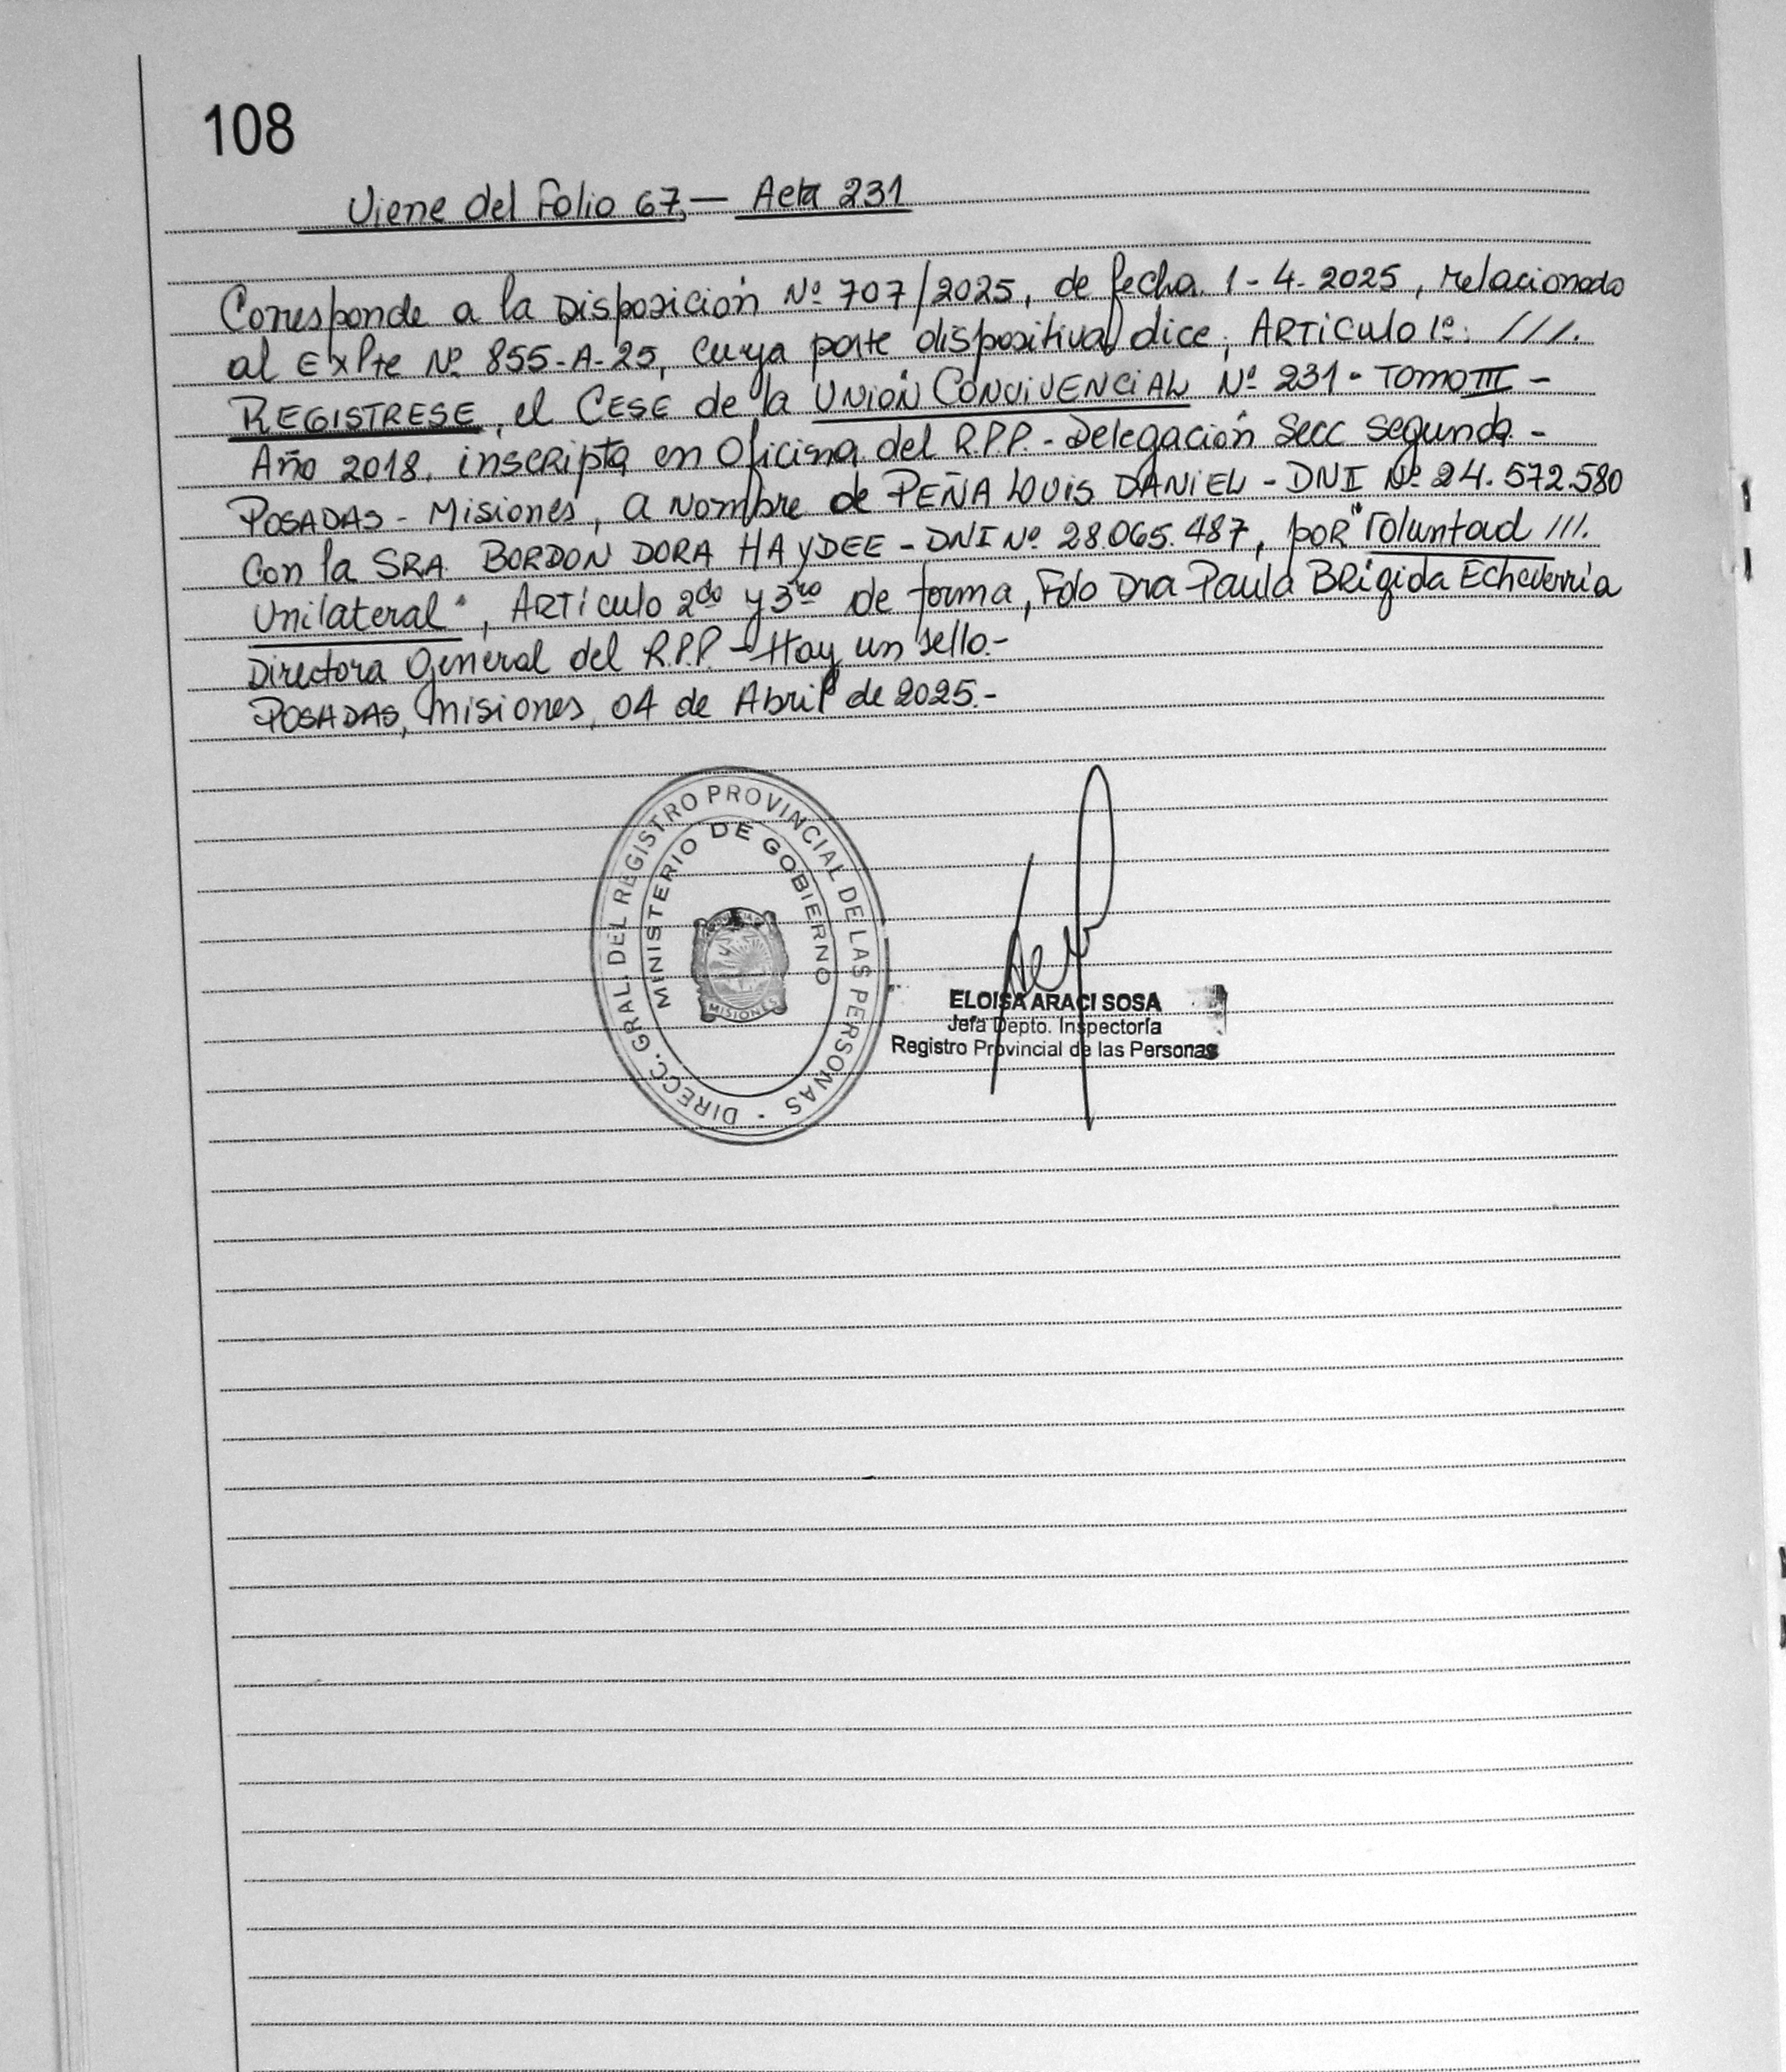 108
Viene del Folio 67,— Acta 231
Corresponde a la Disposición Nº 707/2025, de fecha 1-4-2025, relacionado
al Expte Nº 855-A-25, cuya parte dispositiva dice, ARTiCulo 1º: ///.
REGISTRESE, el CESE de la UNIÓN CONVIVENCIAL Nº 231 - TOMO III -
Año 2018, inscripta en Oficina del R.P.P. - Delegación Secc Segunda -
POSADAS - Misiones, a nombre de PEÑA LUIS DANIEL - DNI Nº 24.572.580
Con la SRA. BORDON DORA HAYDEE - DNI Nº 28.065.487, por "Voluntad ///.
Unilateral", ARTículo 2do y 3ro de forma, Fdo Dra Paula BRígida Echeverria
Directora General del R.P.P. - Hay un sello.-
POSADAS, Misiones, 04 de Abril de 2025.-
DIRECC. GRAL. DEL REGISTRO PROVINCIAL DE LAS PERSONAS -
MINISTERIO DE GOBIERNO
MISIONES
ELOISA ARACI SOSA
Jefa Depto. Inspectoría
Registro Provincial de las Personas